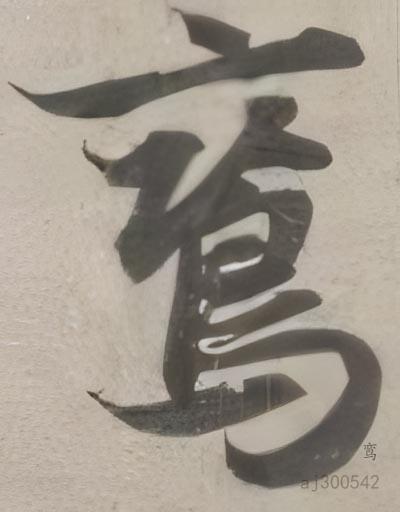 鸾
鸾
aj300542